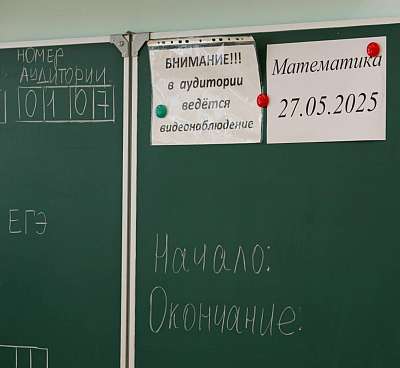 НОМЕР
АУДИТОРИИ
0107
ЕГЭ
ВНИМАНИЕ!!!
в аудитории
ведётся
видеонаблюдение
Математика
27.05.2025
Начало:
Окончание: